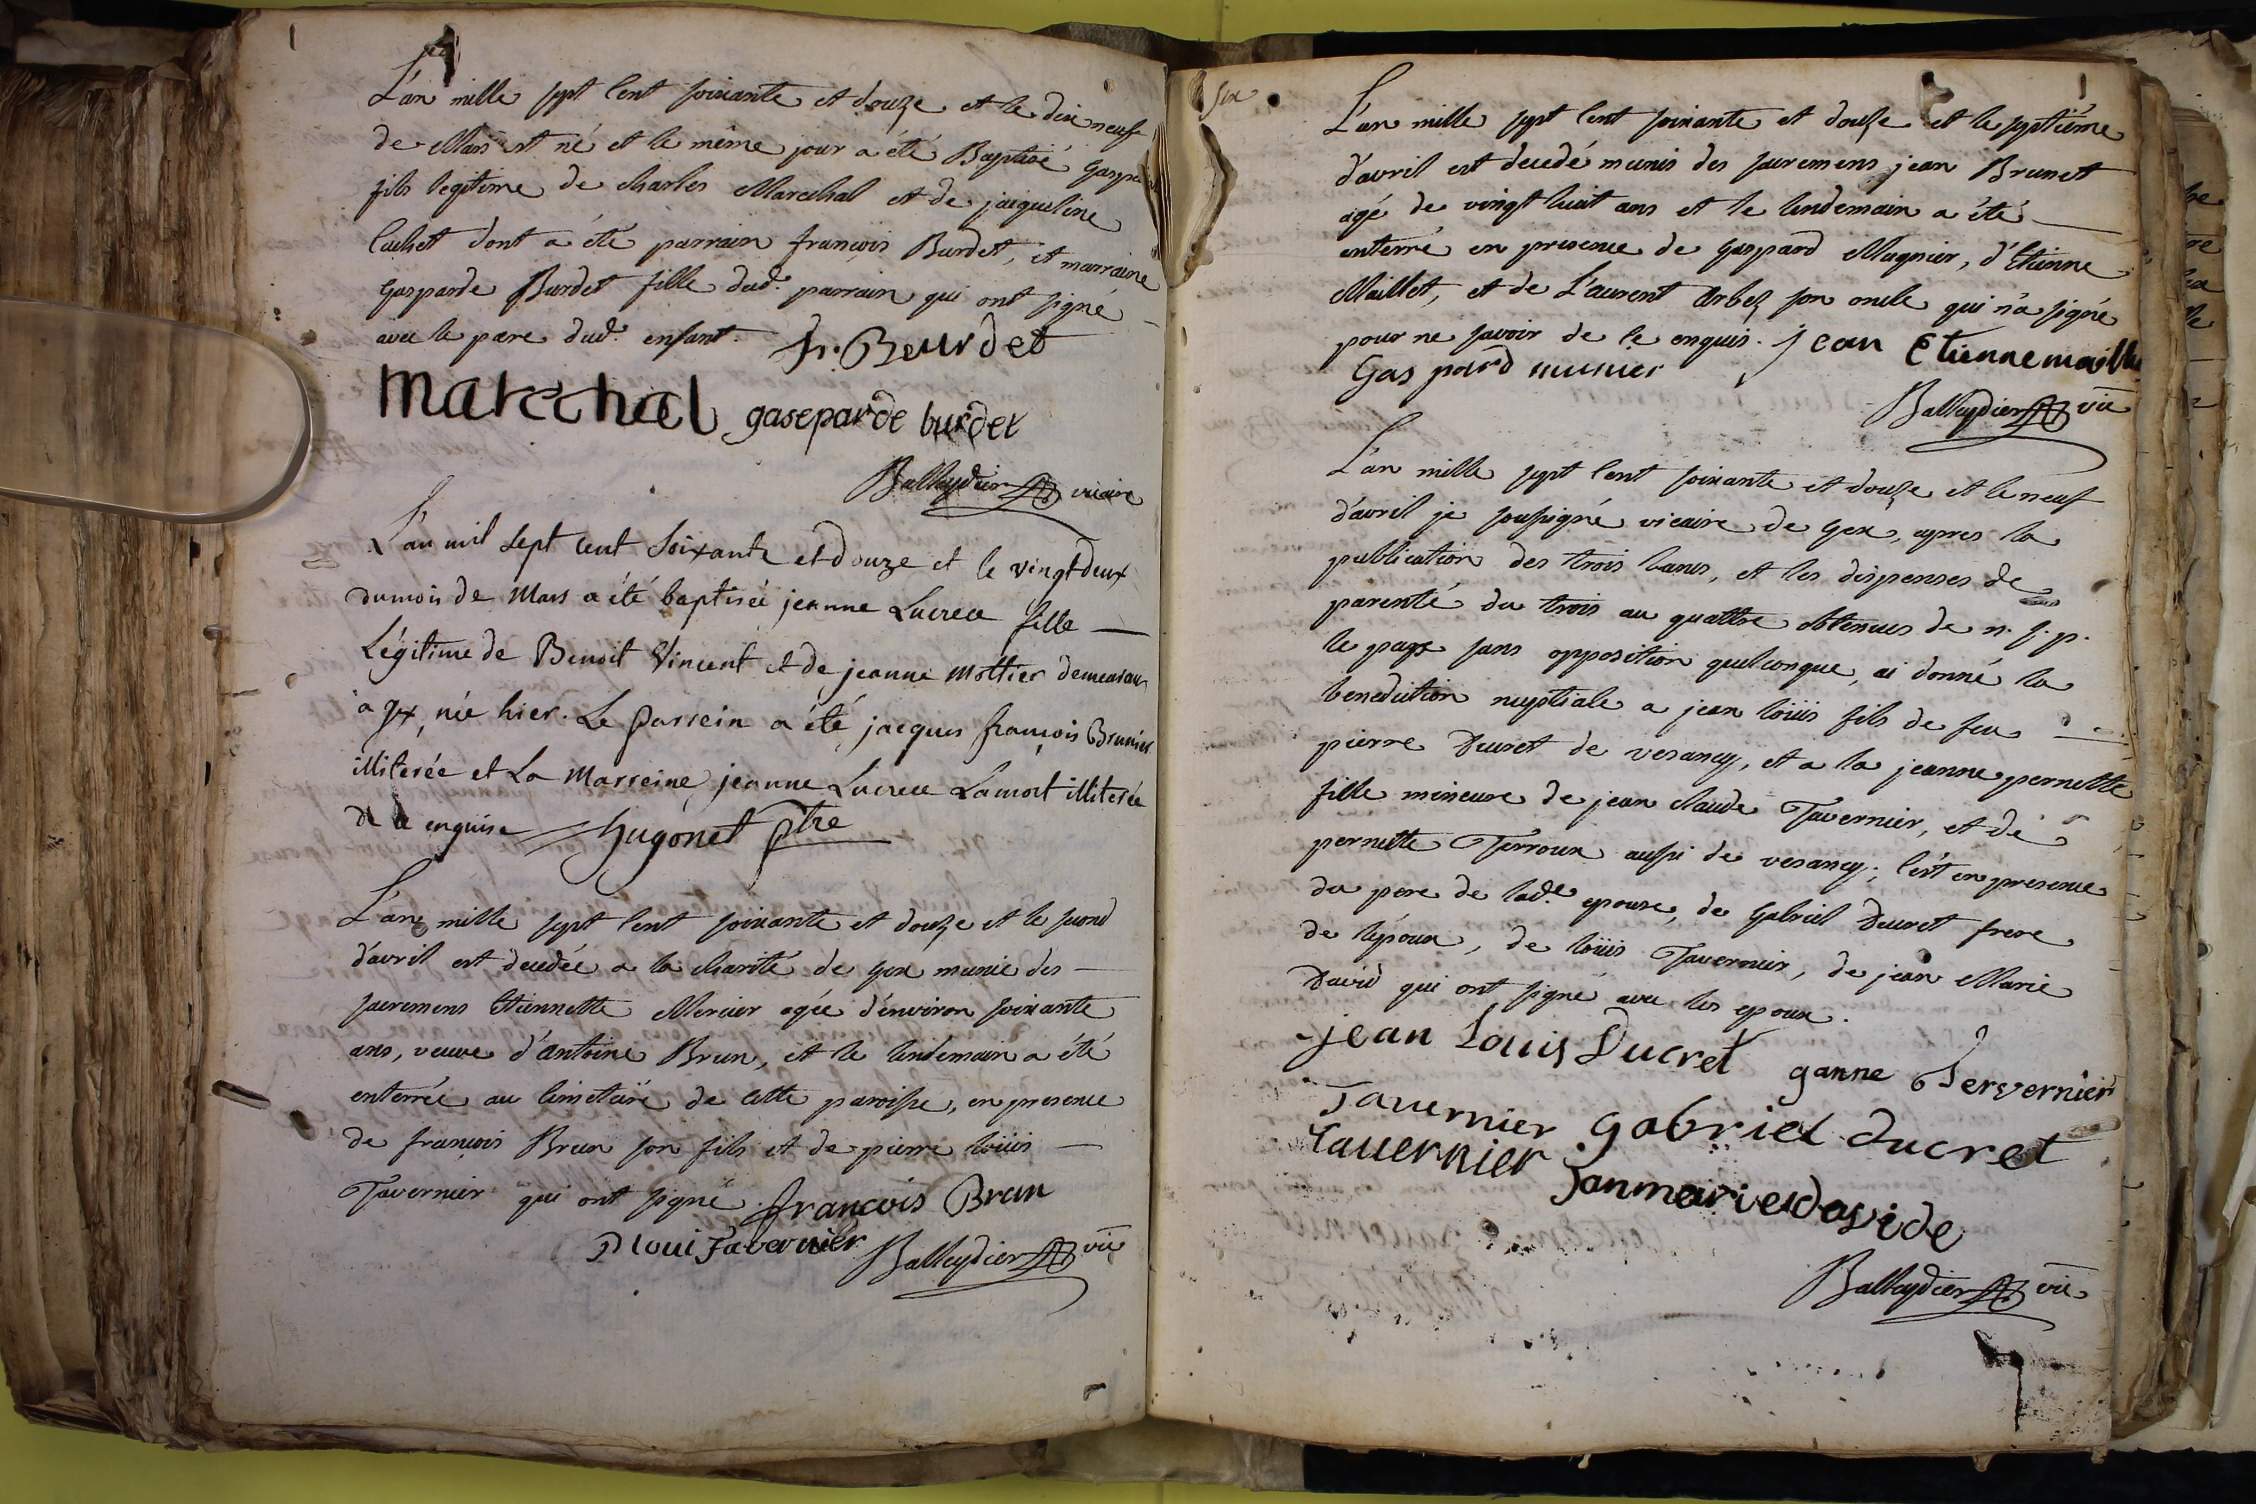 L'an mille sept cent soixante et douze et le dix neuf
de Mars est né et le même jour a été Baptisé gaspard
fils legitime de charles Marechal et de jacqueline
Cachet dont a été parrain françois Burdet, et marraine
gasparde Burdet fille dud. parrain qui ont signé
avec le pere dud. enfant. fr. Beurdet
Marechal gaseparde burdet
Balleydier vicaire
L'an mil sept cent soixante et douze et le vingtdeux
du mois de Mars a été baptisée jeanne Lucrece fille
Légitime de Benoit Vincent et de jeanne Mottier demeurant
à gex, née hier. Le parrein a été jacques françois Brunier
illiterée et La Marreine jeanne Lucrece Lamort illiterée
de ce enquise Hugonet ptre
L'an mille sept cent soixante et douze et le second
d'avril est decedée a la charité de gex munie des
sacremens Etiennette Mercier agée d'environ soixante
ans, veuve d'antoine Brun, et le lendemain a été
enterrée au cimetaire de cette paroisse, en presence
de françois Brun son fils et de pierre loüis
Tavernier qui ont signé françois Brun
P loui Tavernier Balleydier vic
six
L'an mille sept cent soixante et douze et le septième
d'avril est decedé munis des sacremens jean Brunet
agé de vingt huit ans et le lendemain a été
enterré en presence de gaspard Magnier, d'Etienne
Maillet, et de Laurent Arbez son oncle qui n'a signé
pour ne savoir de ce enquis. jean Etienne maillet
Gaspard munier
Balleydier vic
L'an mille sept cent soixante et douze et le neuf
d'avril je soussigné vicaire de gex, apres la
publication des trois bans, et les dispenses de
parenté du trois au quattre obtenues de n. s. p.
le pape sans opposition quelconque, ai donné la
benediction nuptiale a jean loüis fils de feu
pierre Ducret de vesancy, et a la jeanne pernette
fille mineure de jean claude Tavernier, et de
pernette Terroux aussi de vesancy; c'est en presence
du pere de lad.e epouse, de gabriel Ducret frere
de l'époux, de loüis Tavernier, de jean Marie
David qui ont signé avec les epoux.
jean Louis Ducret ganne Pervernier
Tavernier gabriel ducret
tavernier Janmarie davide
Balleydier vic